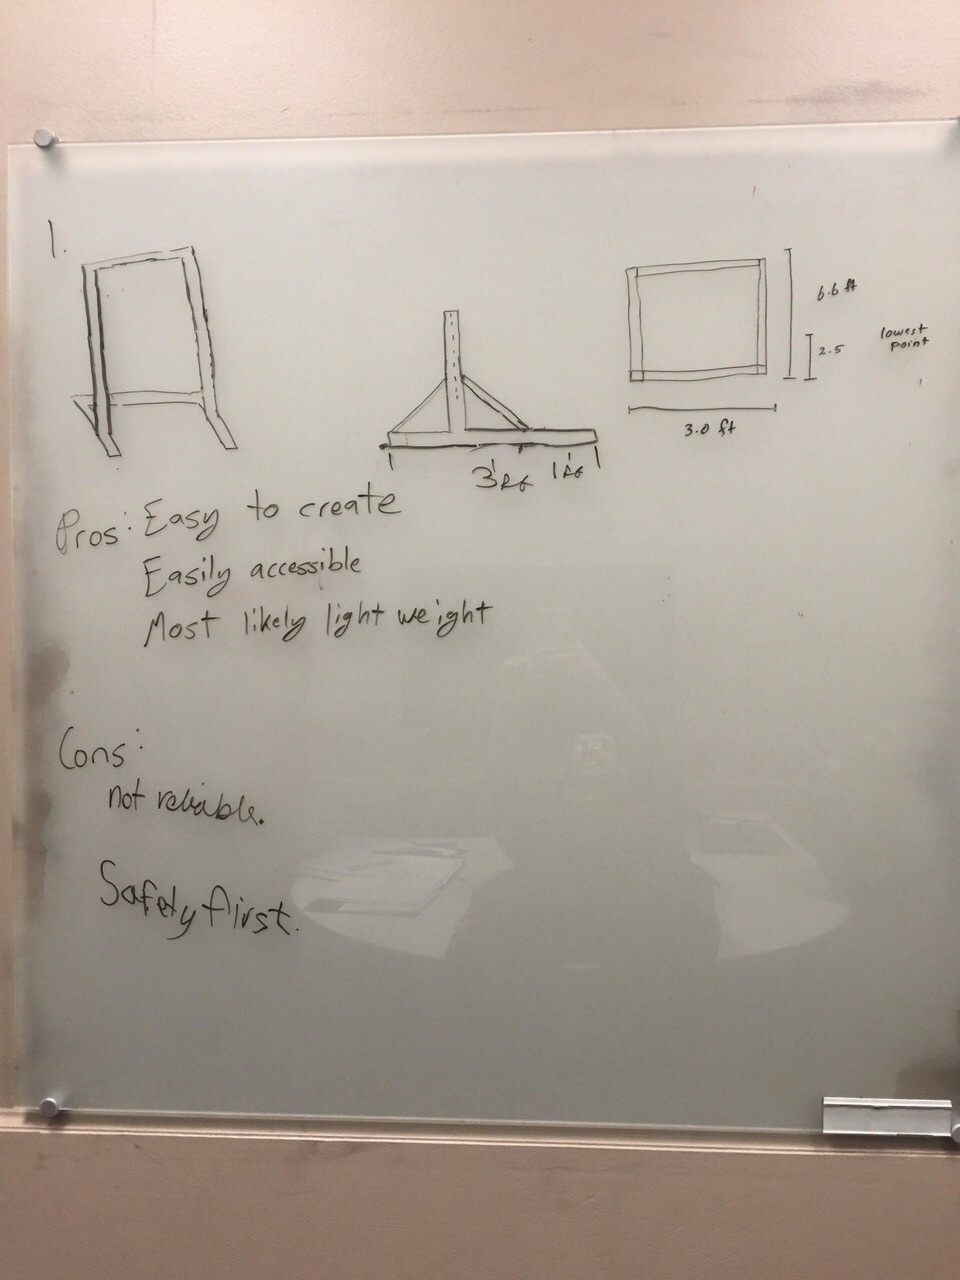 1.
6.6 ft
2.5
lowest
point
3.0 ft
3 ft 1 ft
Pros: Easy to create
Easily accessible
Most likely light weight
Cons:
not reliable.
Safety first.